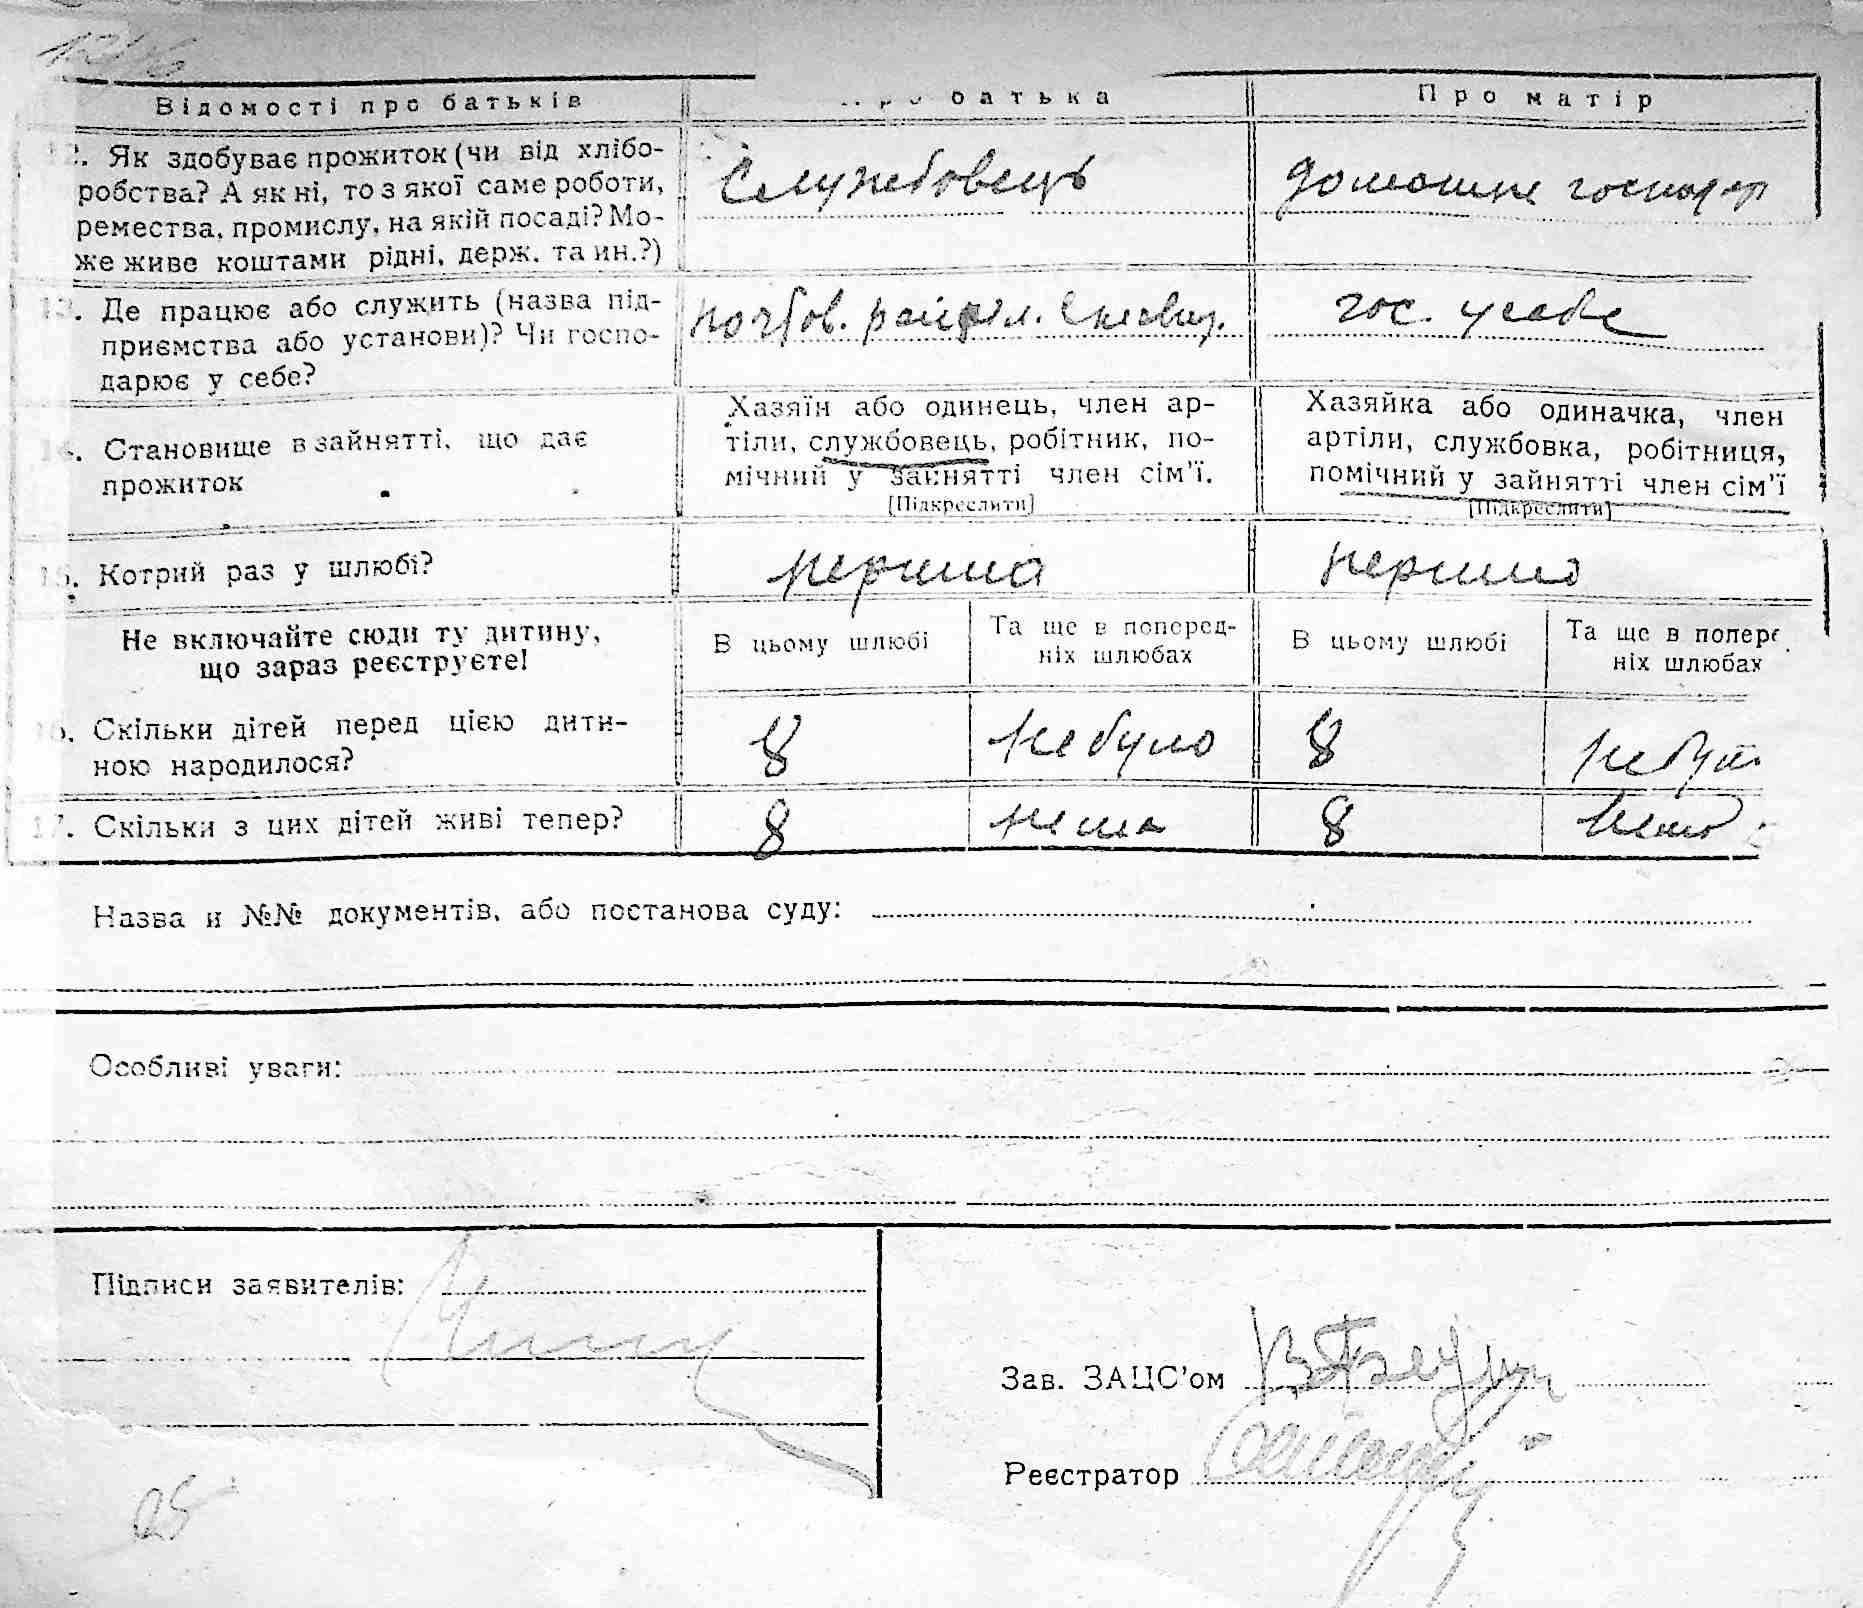 Відомості про батьків
батька
Про матір
12. Як здобуває прожиток (чи від хлібо-
робства? А як ні, то з якої саме роботи,
ремества, промислу, на якій посаді? Мо-
же живе коштами рідні, держ. та ин.?)
Службовець
домашнє господар
13. Де працює або служить (назва під-
приємства або установи)? Чи госпо-
дарює у себе?
гос. у себе
14. Становище в зайнятті, що дає
прожиток
Хазяїн або одинець, член ар-
тіли, службовець, робітник, по-
мічний у зайнятті член сім'ї.
[Підкреслити]
Хазяйка або одиначка, член
артіли, службовка, робітниця,
помічний у зайнятті член сім'ї
[Підкреслити]
15. Котрий раз у шлюбі?
перший
перший
Не включайте сюди ту дитину,
що зараз реєструєте!
В цьому шлюбі
Та ще в поперед-
ніх шлюбах
В цьому шлюбі
Та ще в попере
ніх шлюбах
16. Скільки дітей перед цією дити-
ною народилося?
8
не було
8
17. Скільки з цих дітей живі тепер?
8
нема
8
нема
Назва и №№ документів, або постанова суду:
Особливі уваги:
Підписи заявителів:
Зав. ЗАЦС'ом
Реєстратор